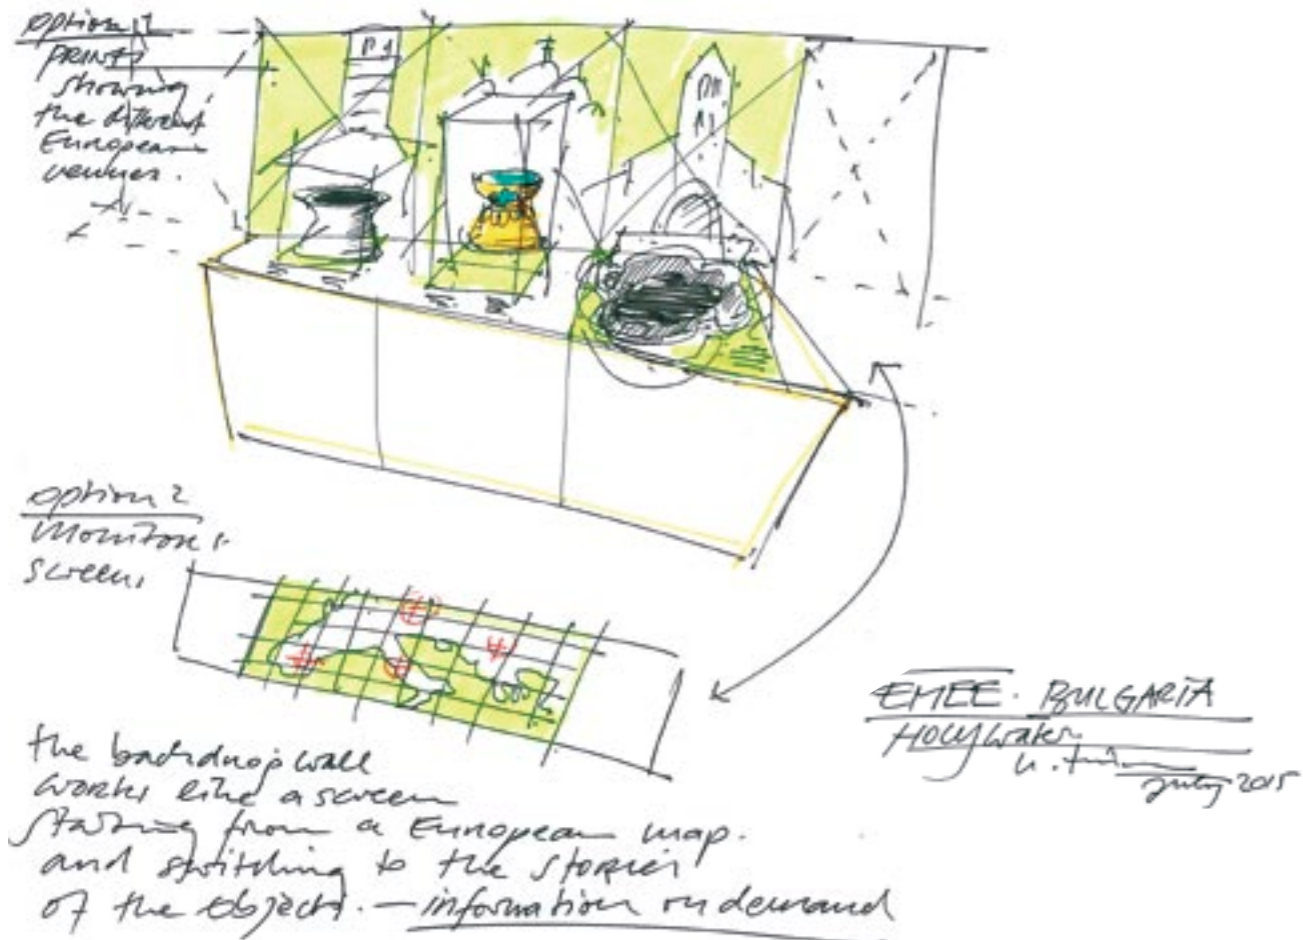 option 1
PRINTS
showing
the different
European
venues.
option 2
Monitor
screen
the backdrop wall
works like a screen
starting from a European map.
and switching to the stories
of the objects. — information on demand
EMEE. BULGARIA
Holy water
July 2015